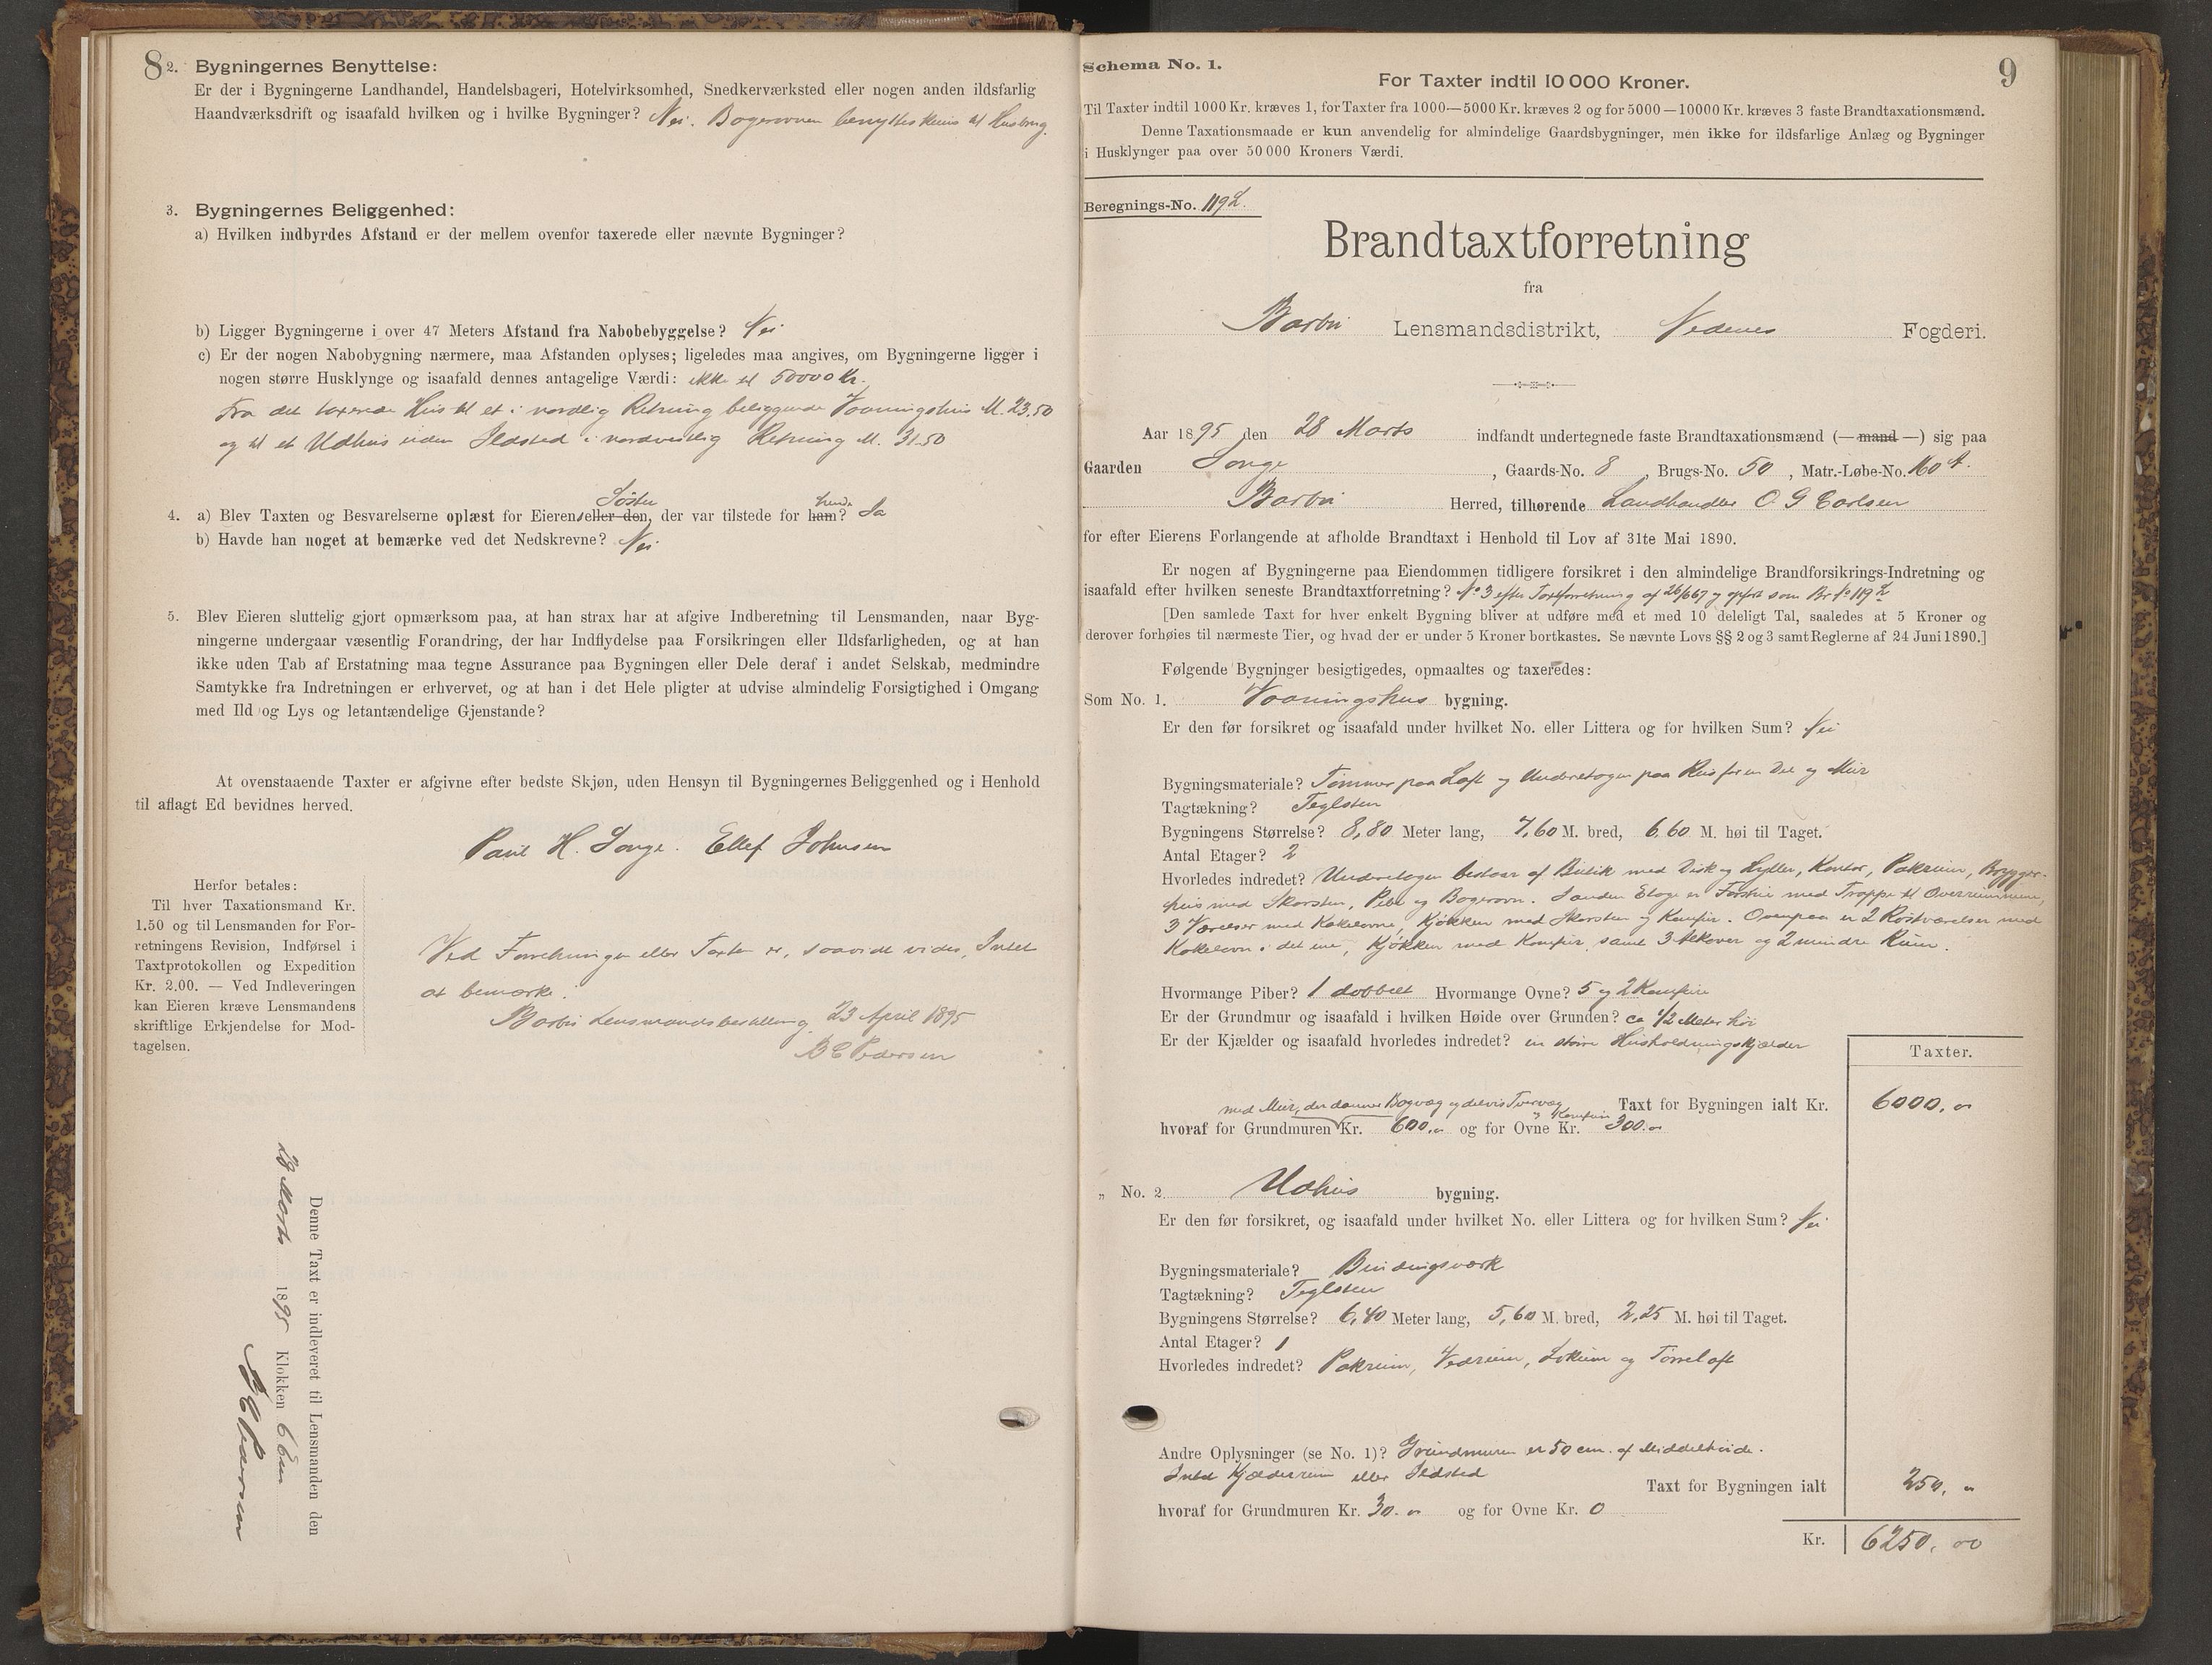 8
2. Bygningernes Benyttelse:
Er der i Bygningerne Landhandel, Handelsbageri, Hotelvirksomhed, Snedkerværksted eller nogen anden ildsfarlig
Haandværksdrift og isaafald hvilken og i hvilke Bygninger? Nei. Bagerovnen benyttes kuns til Husbrug.
3. Bygningernes Beliggenhed:
a) Hvilken indbyrdes Afstand er der mellem ovenfor taxerede eller nævnte Bygninger?
b) Ligger Bygningerne i over 47 Meters Afstand fra Nabobebyggelse? Nei
c) Er der nogen Nabobygning nærmere, maa Afstanden oplyses; ligeledes maa angives, om Bygningerne ligger i
nogen større Husklynge og isaafald dennes antagelige Værdi: ikke til 50000 Kr.
Fra det taxerede Hus til et i nordlig Retning beliggende Vaaningshus M. 23.50
og til et Udhus uden Ildsted i nordvestlig Retning M. 31.50
Søster hende
4. a) Blev Taxten og Besvarelserne oplæst for Eierens eller den, der var tilstede for ham? Ja
b) Havde han noget at bemærke ved det Nedskrevne? Nei
5. Blev Eieren sluttelig gjort opmærksom paa, at han strax har at afgive Indberetning til Lensmanden, naar Byg-
ningerne undergaar væsentlig Forandring, der har Indflydelse paa Forsikringen eller Ildsfarligheden, og at han
ikke uden Tab af Erstatning maa tegne Assurance paa Bygningen eller Dele deraf i andet Selskab, medmindre
Samtykke fra Indretningen er erhvervet, og at han i det Hele pligter at udvise almindelig Forsigtighed i Omgang
med Ild og Lys og letantændelige Gjenstande?
At ovenstaaende Taxter er afgivne efter bedste Skjøn, uden Hensyn til Bygningernes Beliggenhed og i Henhold
til aflagt Ed bevidnes herved.
Paul H. Songe. Ellef Johnsen
Herfor betales:
Til hver Taxationsmand Kr.
1.50 og til Lensmanden for For-
retningens Revision, Indførsel i
Taxtprotokollen og Expedition
Kr. 2.00. — Ved Indleveringen
kan Eieren kræve Lensmandens
skriftlige Erkjendelse for Mod-
tagelsen.
Ved Forretningen eller Taxten er, saavidt vides, Intet
at bemærke.
Barbu Lensmandsbestilling 23 April 1895
B C Pedersen
Denne Taxt er indleveret til Lensmanden den
29 Marts 1895 Klokken 6 Em
B C Pedersen
9
Schema No. 1.
For Taxter indtil 10 000 Kroner.
Til Taxter indtil 1000 Kr. kræves 1, for Taxter fra 1000—5000 Kr. kræves 2 og for 5000—10000 Kr. kræves 3 faste Brandtaxationsmænd.
Denne Taxationsmaade er kun anvendelig for almindelige Gaardsbygninger, men ikke for ildsfarlige Anlæg og Bygninger
i Husklynger paa over 50 000 Kroners Værdi.
Beregnings-No. 119 L.
Brandtaxtforretning
fra
Barbu Lensmandsdistrikt, Nedenes Fogderi.
Aar 1895 den 28 Marts indfandt undertegnede faste Brandtaxationsmænd (— mand —) sig paa
Gaarden Songe, Gaards-No. 8, Brugs-No. 50, Matr.-Løbe-No. 160 A.
Barbu Herred, tilhørende Landhandler O. G Carlsen
for efter Eierens Forlangende at afholde Brandtaxt i Henhold til Lov af 31te Mai 1890.
Er nogen af Bygningerne paa Eiendommen tidligere forsikret i den almindelige Brandforsikrings-Indretning og
isaafald efter hvilken seneste Brandtaxtforretning? No 3 efter Taxtforretning af 26/6 67 og opført som Br No 119 L
[Den samlede Taxt for hver enkelt Bygning bliver at udføre med et med 10 deleligt Tal, saaledes at 5 Kroner og
derover forhøies til nærmeste Tier, og hvad der er under 5 Kroner bortkastes. Se nævnte Lovs §§ 2 og 3 samt Reglerne af 24 Juni 1890.]
Følgende Bygninger besigtigedes, opmaaltes og taxeredes:
Som No. 1. Vaaningshus bygning.
Er den før forsikret og isaafald under hvilket No. eller Littera og for hvilken Sum? Nei
Bygningsmateriale? Tømmer paa Loft og Underetagen paa Hus for en Del og Mur
Tagtækning? Teglsten
Bygningens Størrelse? 8,80 Meter lang, 7,60 M. bred, 6.60 M. høi til Taget.
Antal Etager? 2
Hvorledes indredet? Underetagen bestaar af Butik med Disk og Hylder, Kontor, Pakrum, Brygger-
hus med Skorsten, Pibe og Bagerovn. I anden Etage er Forstue med Trappe til Overrummene,
3 Værelser med Kakelovne, Kjøkken med Skorsten og Komfur. Ovenpaa er 2 Kvistværelser med
Kakelovn i det ene, Kjøkken med Komfur, samt 3 Alkover og 2 mindre Rum.
Hvormange Piber? 1 dobbelt Hvormange Ovne? 5 og 2 Komfure
Er der Grundmur og isaafald i hvilken Høide over Grunden? ca 1/2 Meter høi
Er der Kjælder og isaafald hvorledes indredet? en større Husholdningskjælder
Taxter.
med Mur, der danner Bagvæg og delvis Tvervæg
Taxt for Bygningen ialt Kr. 6000. "
og Komfure
hvoraf for Grundmuren Kr. 600. " og for Ovne Kr. 300. "
" No. 2. Udhus bygning.
Er den før forsikret, og isaafald under hvilket No. eller Littera og for hvilken Sum? Nei
Bygningsmateriale? Bindingsværk
Tagtækning? Teglsten
Bygningens Størrelse? 6,40 Meter lang, 5,60 M. bred, 2,25 M. høi til Taget.
Antal Etager? 1
Hvorledes indredet? Pakrum, Vedrum, Lokum og Tørreloft
Andre Oplysninger (se No. 1)? Grundmuren er 50 cm. af Middelhøide.
Intet Kjælderrum eller Ildsted
Taxt for Bygningen ialt 250. "
hvoraf for Grundmuren Kr. 30. " og for Ovne Kr. 0
Kr. 6250. 00